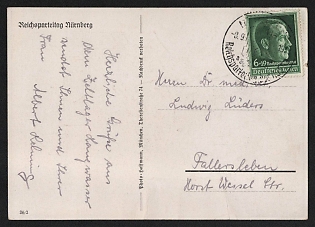 Reichsparteitag Nürnberg
Herzliche Grüße aus
dem Zeltlager Langwasser
sendet Ihnen und Ihrer
Frau
Albert
Photo-Hoffmann, München, Theresienstraße 74 - Nachdruck verboten
6+19
Deutsches Reich
Herrn Dr. med.
Ludwig Lüders
Fallersleben
Horst Wessel Str.